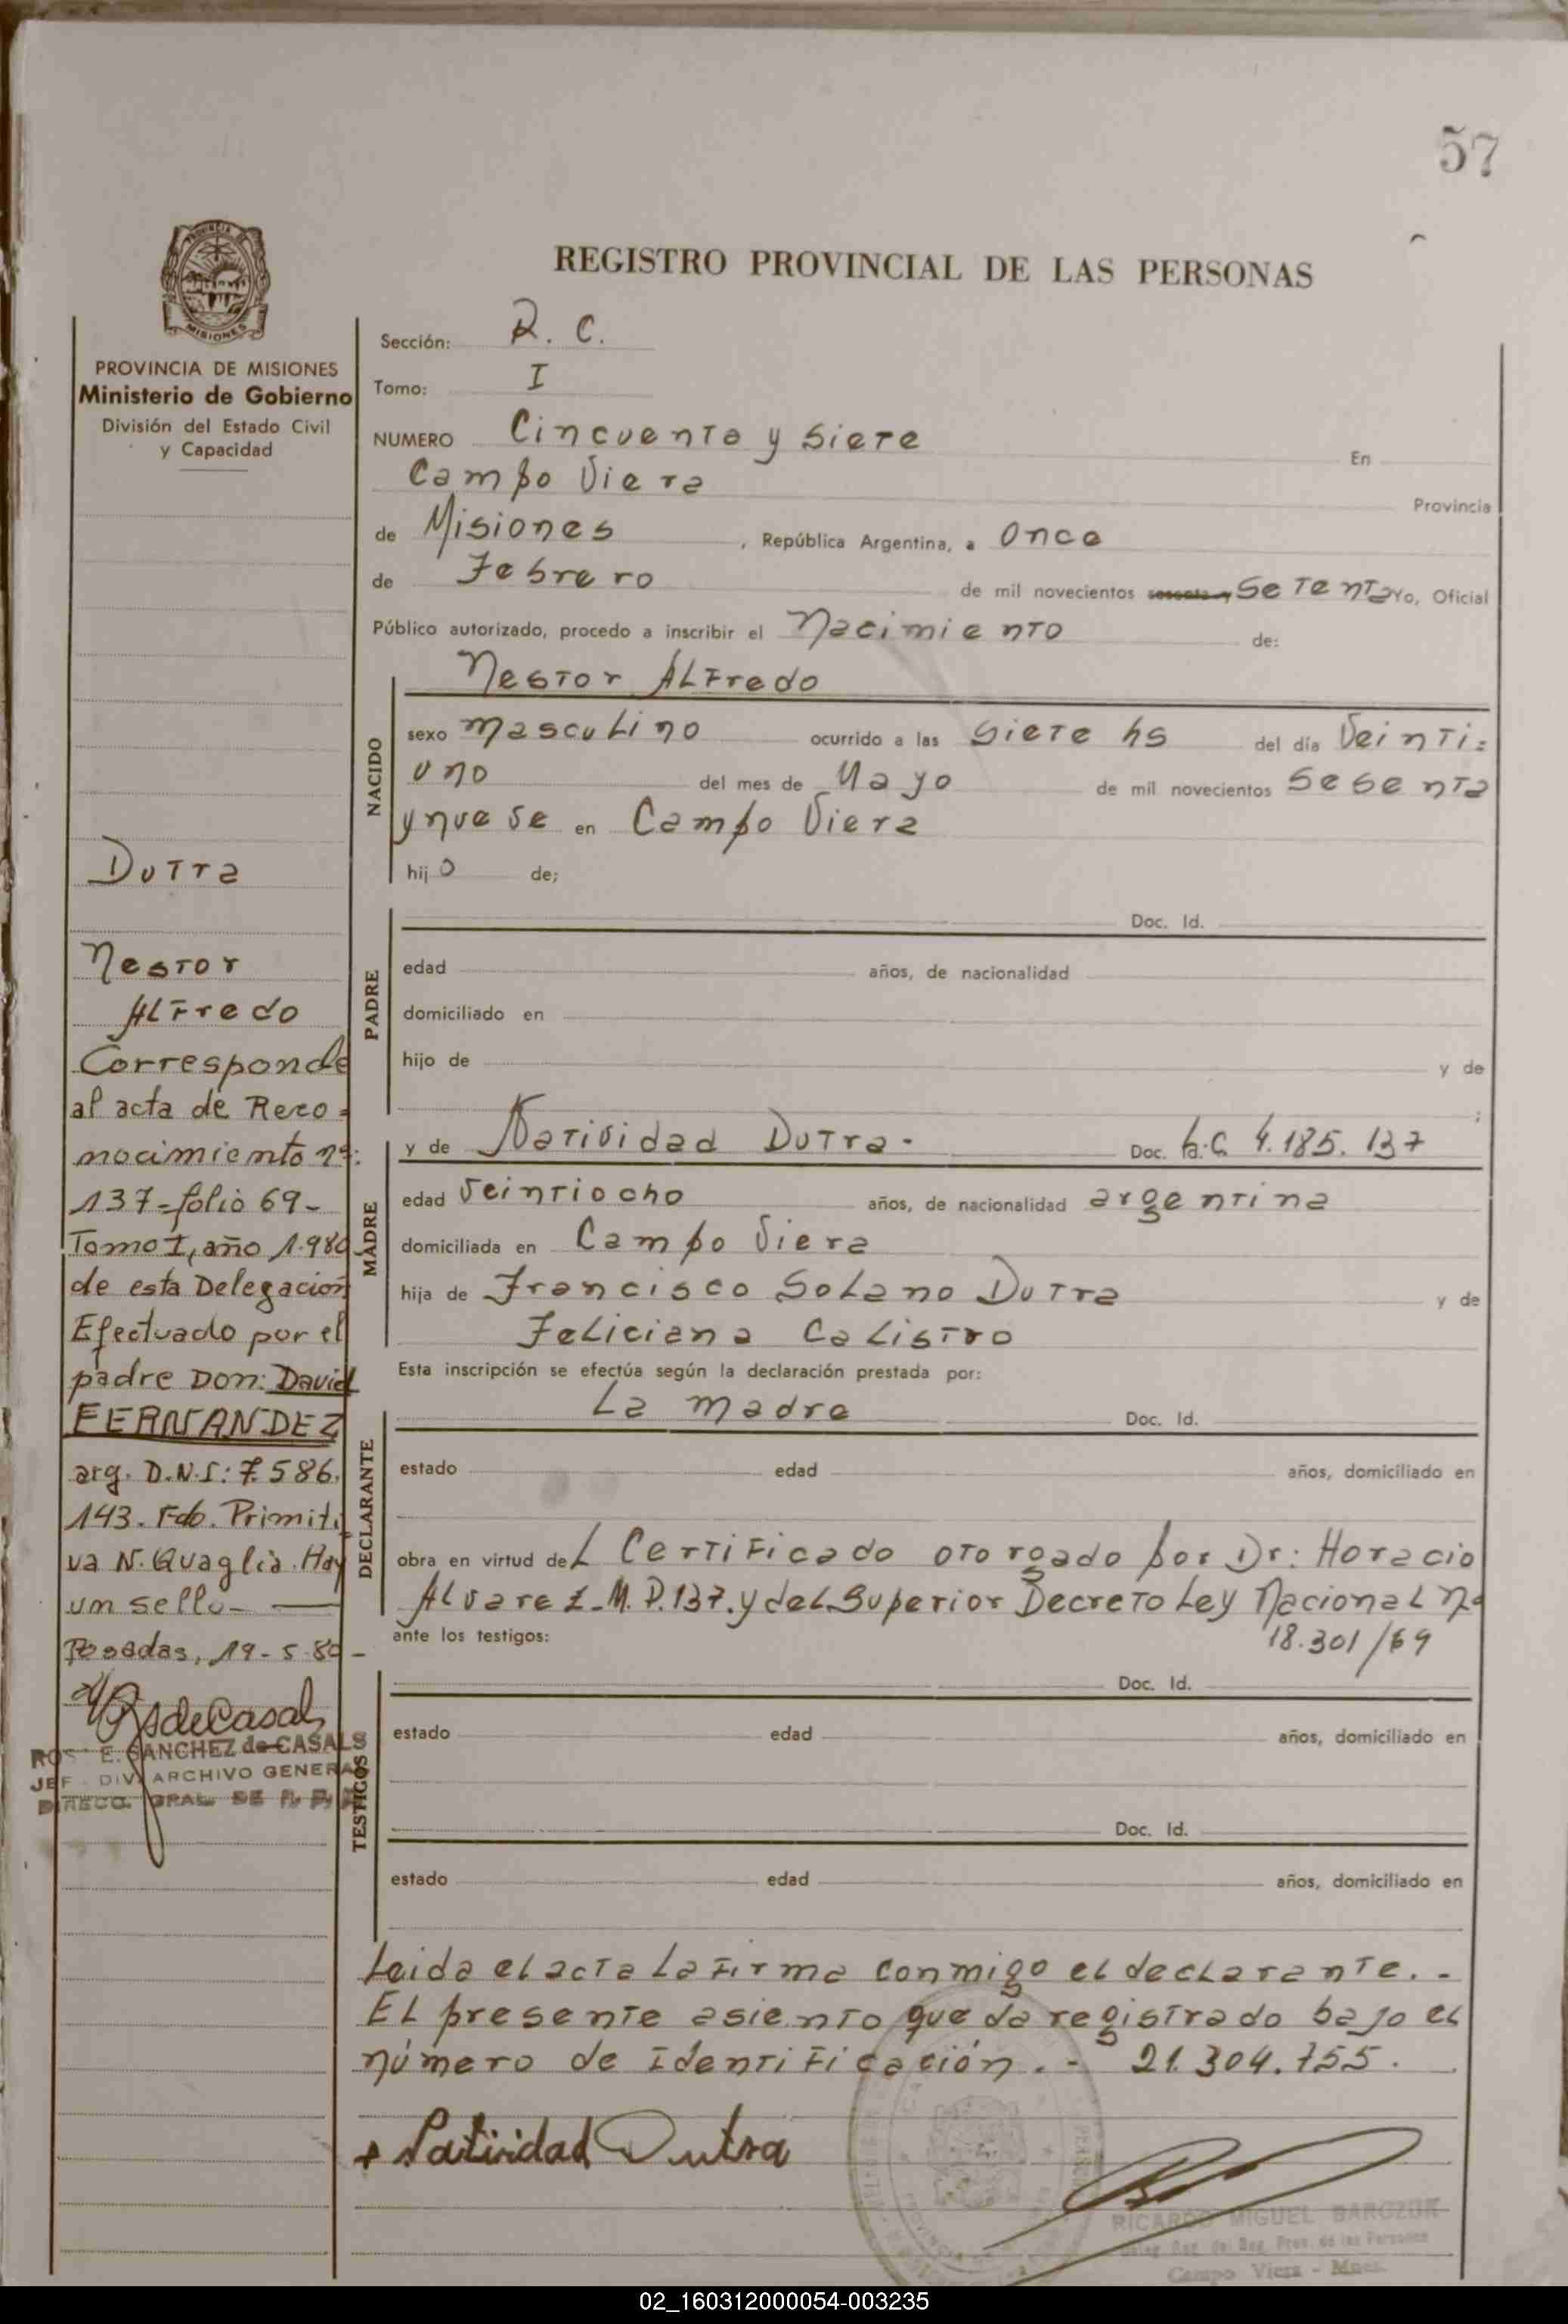 57
REGISTRO PROVINCIAL DE LAS PERSONAS
MISIONES
PROVINCIA DE MISIONES
Ministerio de Gobierno
División del Estado Civil
y Capacidad
Dutra
Nestor
Alfredo
Corresponde
al acta de Reco=
nocimiento nº:
137=folio 69-
Tomo I, año 1.980
de esta Delegación
Efectuado por el
padre Don: David
FERNANDEZ
arg. D.N.I: 7.586.
143. Fdo. Primiti
va N. Quaglia. Hay
un sello-
Posadas, 19-5-80-
E. SANCHEZ de CASALS
DIV. ARCHIVO GENERAL
Sección: R. C.
Tomo: I
NUMERO Cincuenta y siete En
Campo Viera Provincia
de Misiones, República Argentina, a Once
de Febrero de mil novecientos sesenta y Setenta Yo, Oficial
Público autorizado, procedo a inscribir el Nacimiento de:
NACIDO
Nestor Alfredo
sexo masculino ocurrido a las siete hs del día Veinti=
uno del mes de Mayo de mil novecientos Sesenta
y nueve en Campo Viera
hijo de;
PADRE
Doc. Id.
edad años, de nacionalidad
domiciliado en
hijo de y de
;
MADRE
y de Natividad Dutra. Doc. L.C. 4.185.137
edad veintiocho años, de nacionalidad argentina
domiciliada en Campo Viera
hija de Francisco Solano Dutra y de
Feliciana Calistro
Esta inscripción se efectúa según la declaración prestada por:
DECLARANTE
La madre Doc. Id.
estado edad años, domiciliado en
obra en virtud del Certificado otorgado por Dr: Horacio
Alvarez. M.P.137. y del Superior Decreto Ley Nacional Nº
18.301/69
ante los testigos:
TESTIGOS
Doc. Id.
estado edad años, domiciliado en
Doc. Id.
estado edad años, domiciliado en
Leida el acta la firma conmigo el declarante.-
El presente asiento queda registrado bajo el
número de Identificación.- 21.304.755.
+ Natividad Dutra
RICARDO MIGUEL BARCZUK
Campo Viera - Mnes.
02_160312000054-003235